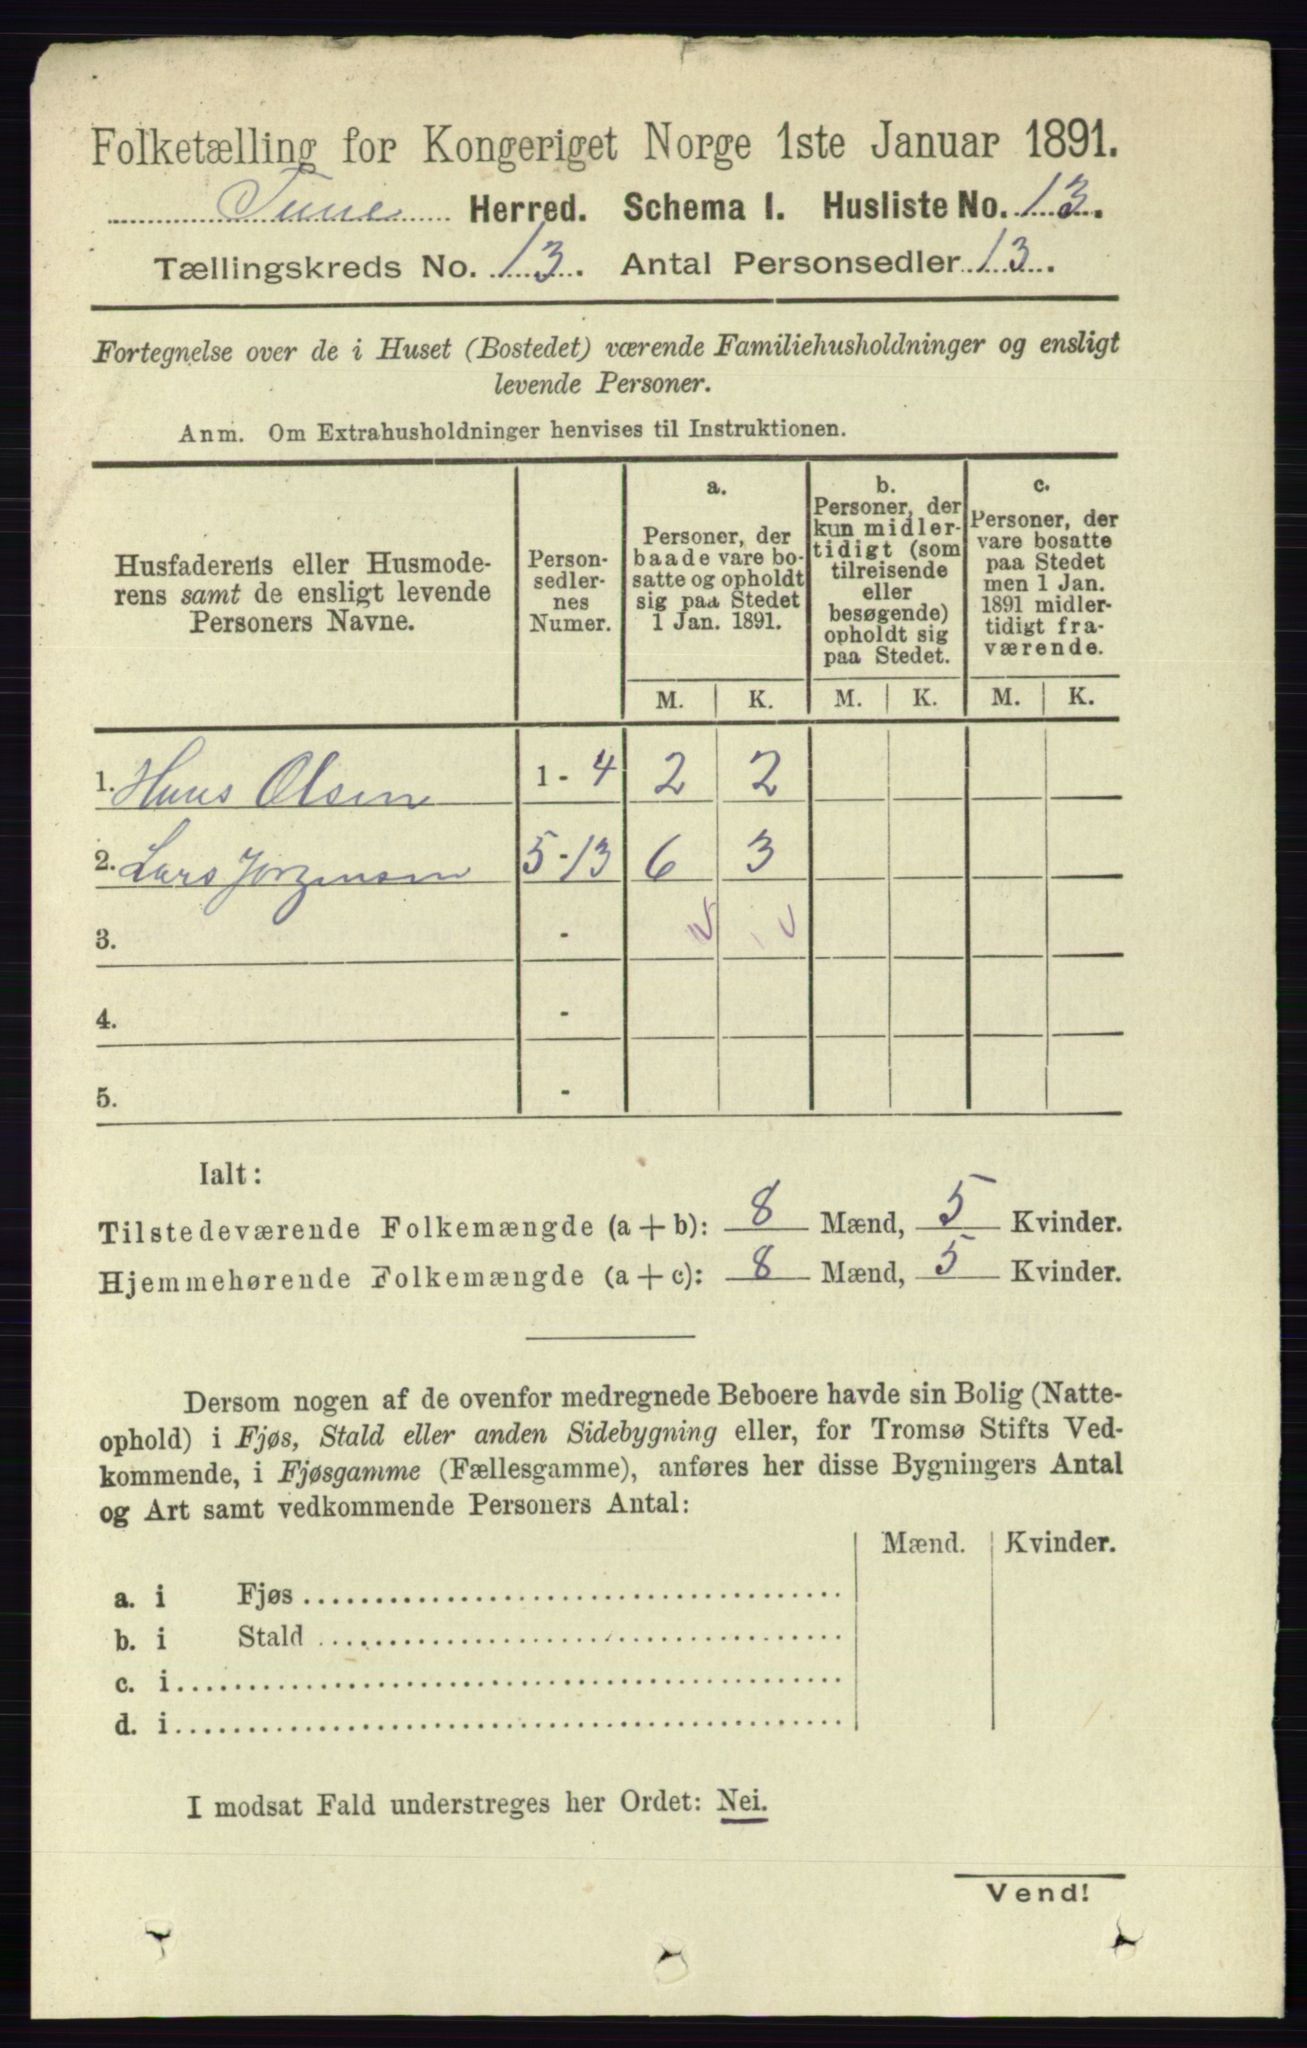 Folketælling for Kongeriget Norge 1ste Januar 1891.
Tune Herred. Schema I. Husliste No. 13.
Tællingskreds No. 13. Antal Personsedler 13.
Fortegnelse over de i Huset (Bostedet) værende Familiehusholdninger og ensligt
levende Personer.
Anm. Om Extrahusholdninger henvises til Instruktionen.
Husfaderens eller Husmode-
rens samt de ensligt levende
Personers Navne.
Person-
sedler-
nes
Numer.
a.
Personer, der
baade vare bo-
satte og opholdt
sig paa Stedet
1 Jan. 1891.
b.
Personer, der
kun midler-
tidigt (som
tilreisende
eller
besøgende)
opholdt sig
paa Stedet.
c.
Personer, der
vare bosatte
paa Stedet
men 1 Jan.
1891 midler-
tidigt fra-
værende.
M. K. M. K. M. K.
1. Hans Olsen 1 - 4 2 2
2. Lars Jørgensen 5 - 13 6 3
3. -
4. -
5. -
Ialt:
Tilstedeværende Folkemængde (a + b): 8 Mænd, 5 Kvinder.
Hjemmehørende Folkemængde (a + c): 8 Mænd, 5 Kvinder.
Dersom nogen af de ovenfor medregnede Beboere havde sin Bolig (Natte-
ophold) i Fjøs, Stald eller anden Sidebygning eller, for Tromsø Stifts Ved-
kommende, i Fjøsgamme (Fællesgamme), anføres her disse Bygningers Antal
og Art samt vedkommende Personers Antal:
Mænd. Kvinder.
a. i Fjøs
b. i Stald
c. i
d. i
I modsat Fald understreges her Ordet: Nei.
Vend!